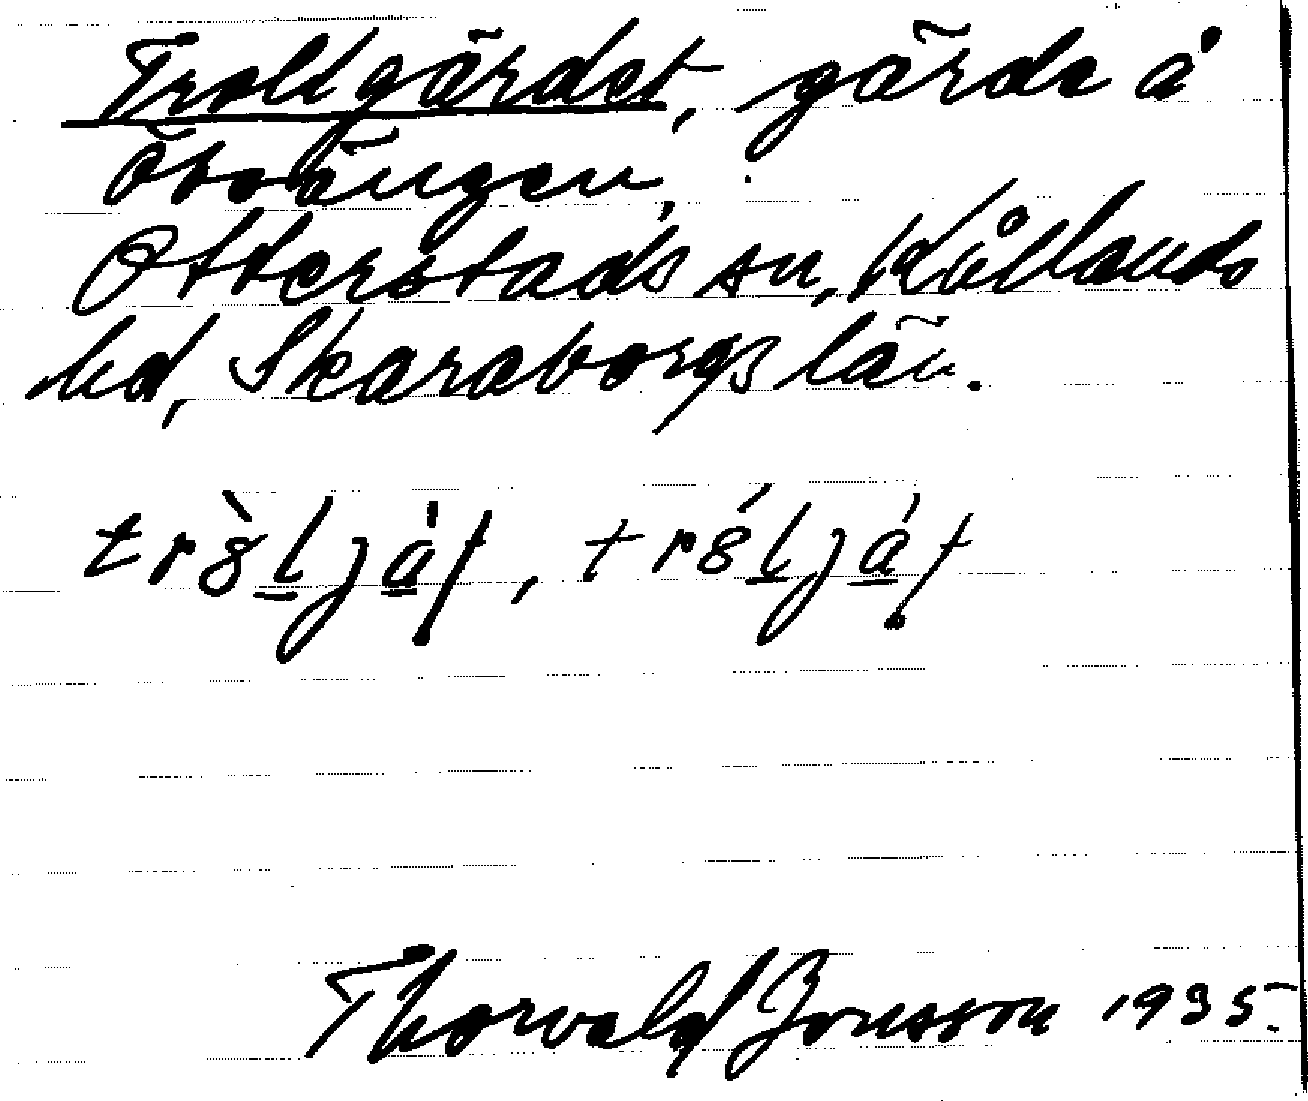 Trollgärdet, gärde å
Öboängen,
Otterstads sn, Kållands
hd, Skaraborgs län.
Thorvald Jonsson 1935.